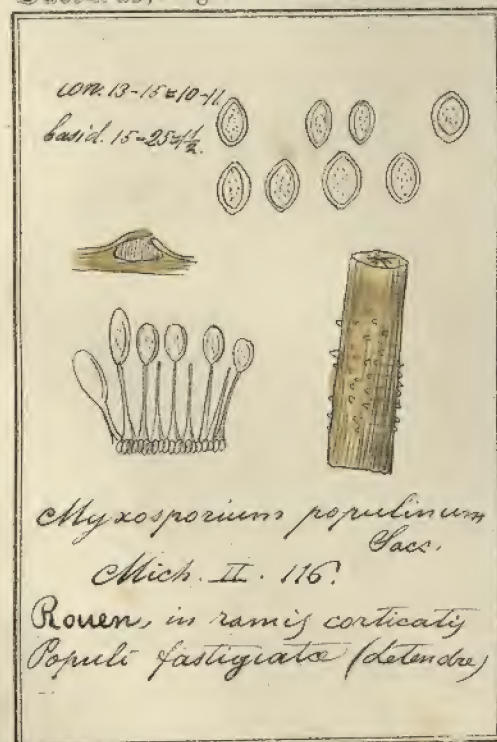 con. 13-15=10-11
basid. 15=25=1½.
Myxosporium populinum
Sacc.
Mich. II. 116.
Rouen, in ramis corticatis
Populi fastigiatæ (Letendre)